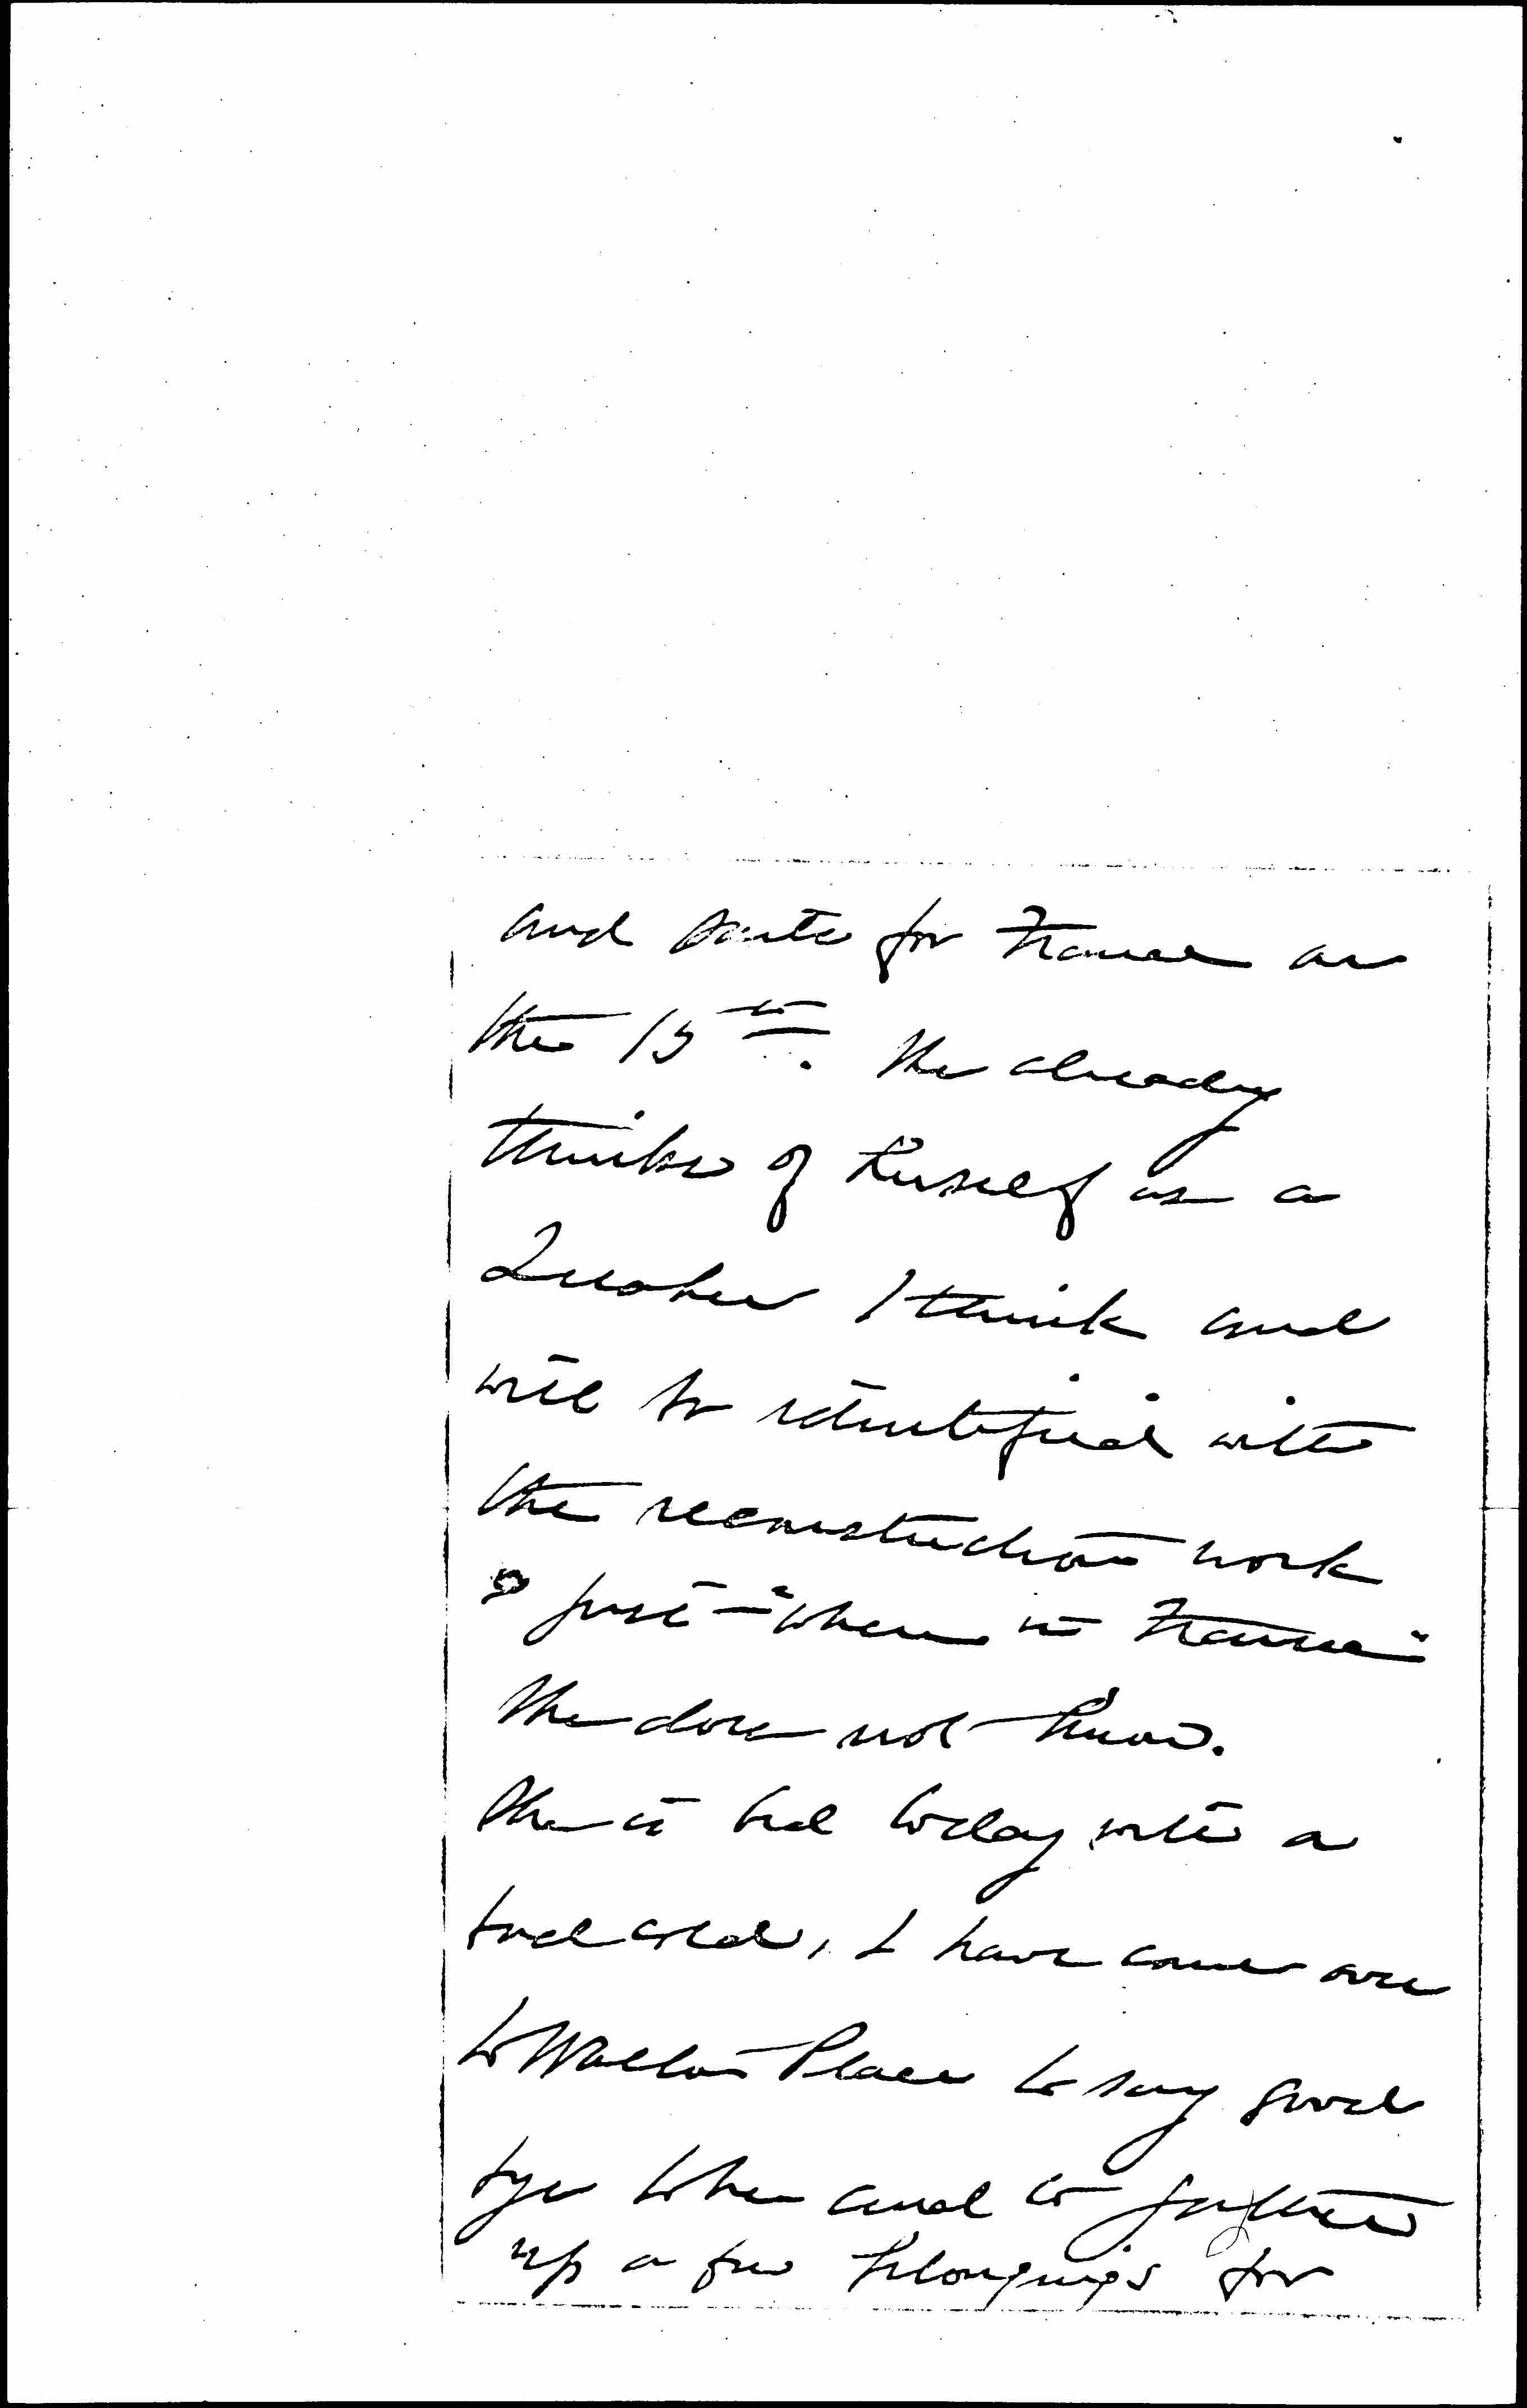 and sails for France on
the 15th. She already
thinks of herself as a
Quaker I think and
will be identified with
the reconstruction work
just - "where in France"
she does not know.
She is bed today with a
bad cold, I have come over
to Walton Place to say good
bye to her and to gather
up a few belongings for